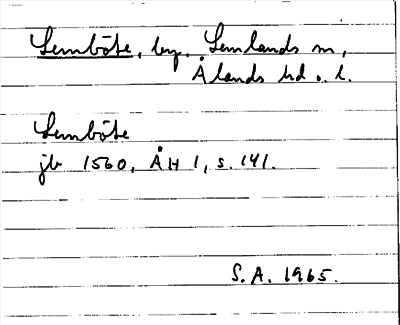 Lemböte, by, Lemlands sn,
Ålands hd o. l.
Lemböte
jb 1560, ÅH 1, s. 141.
S.A. 1965.